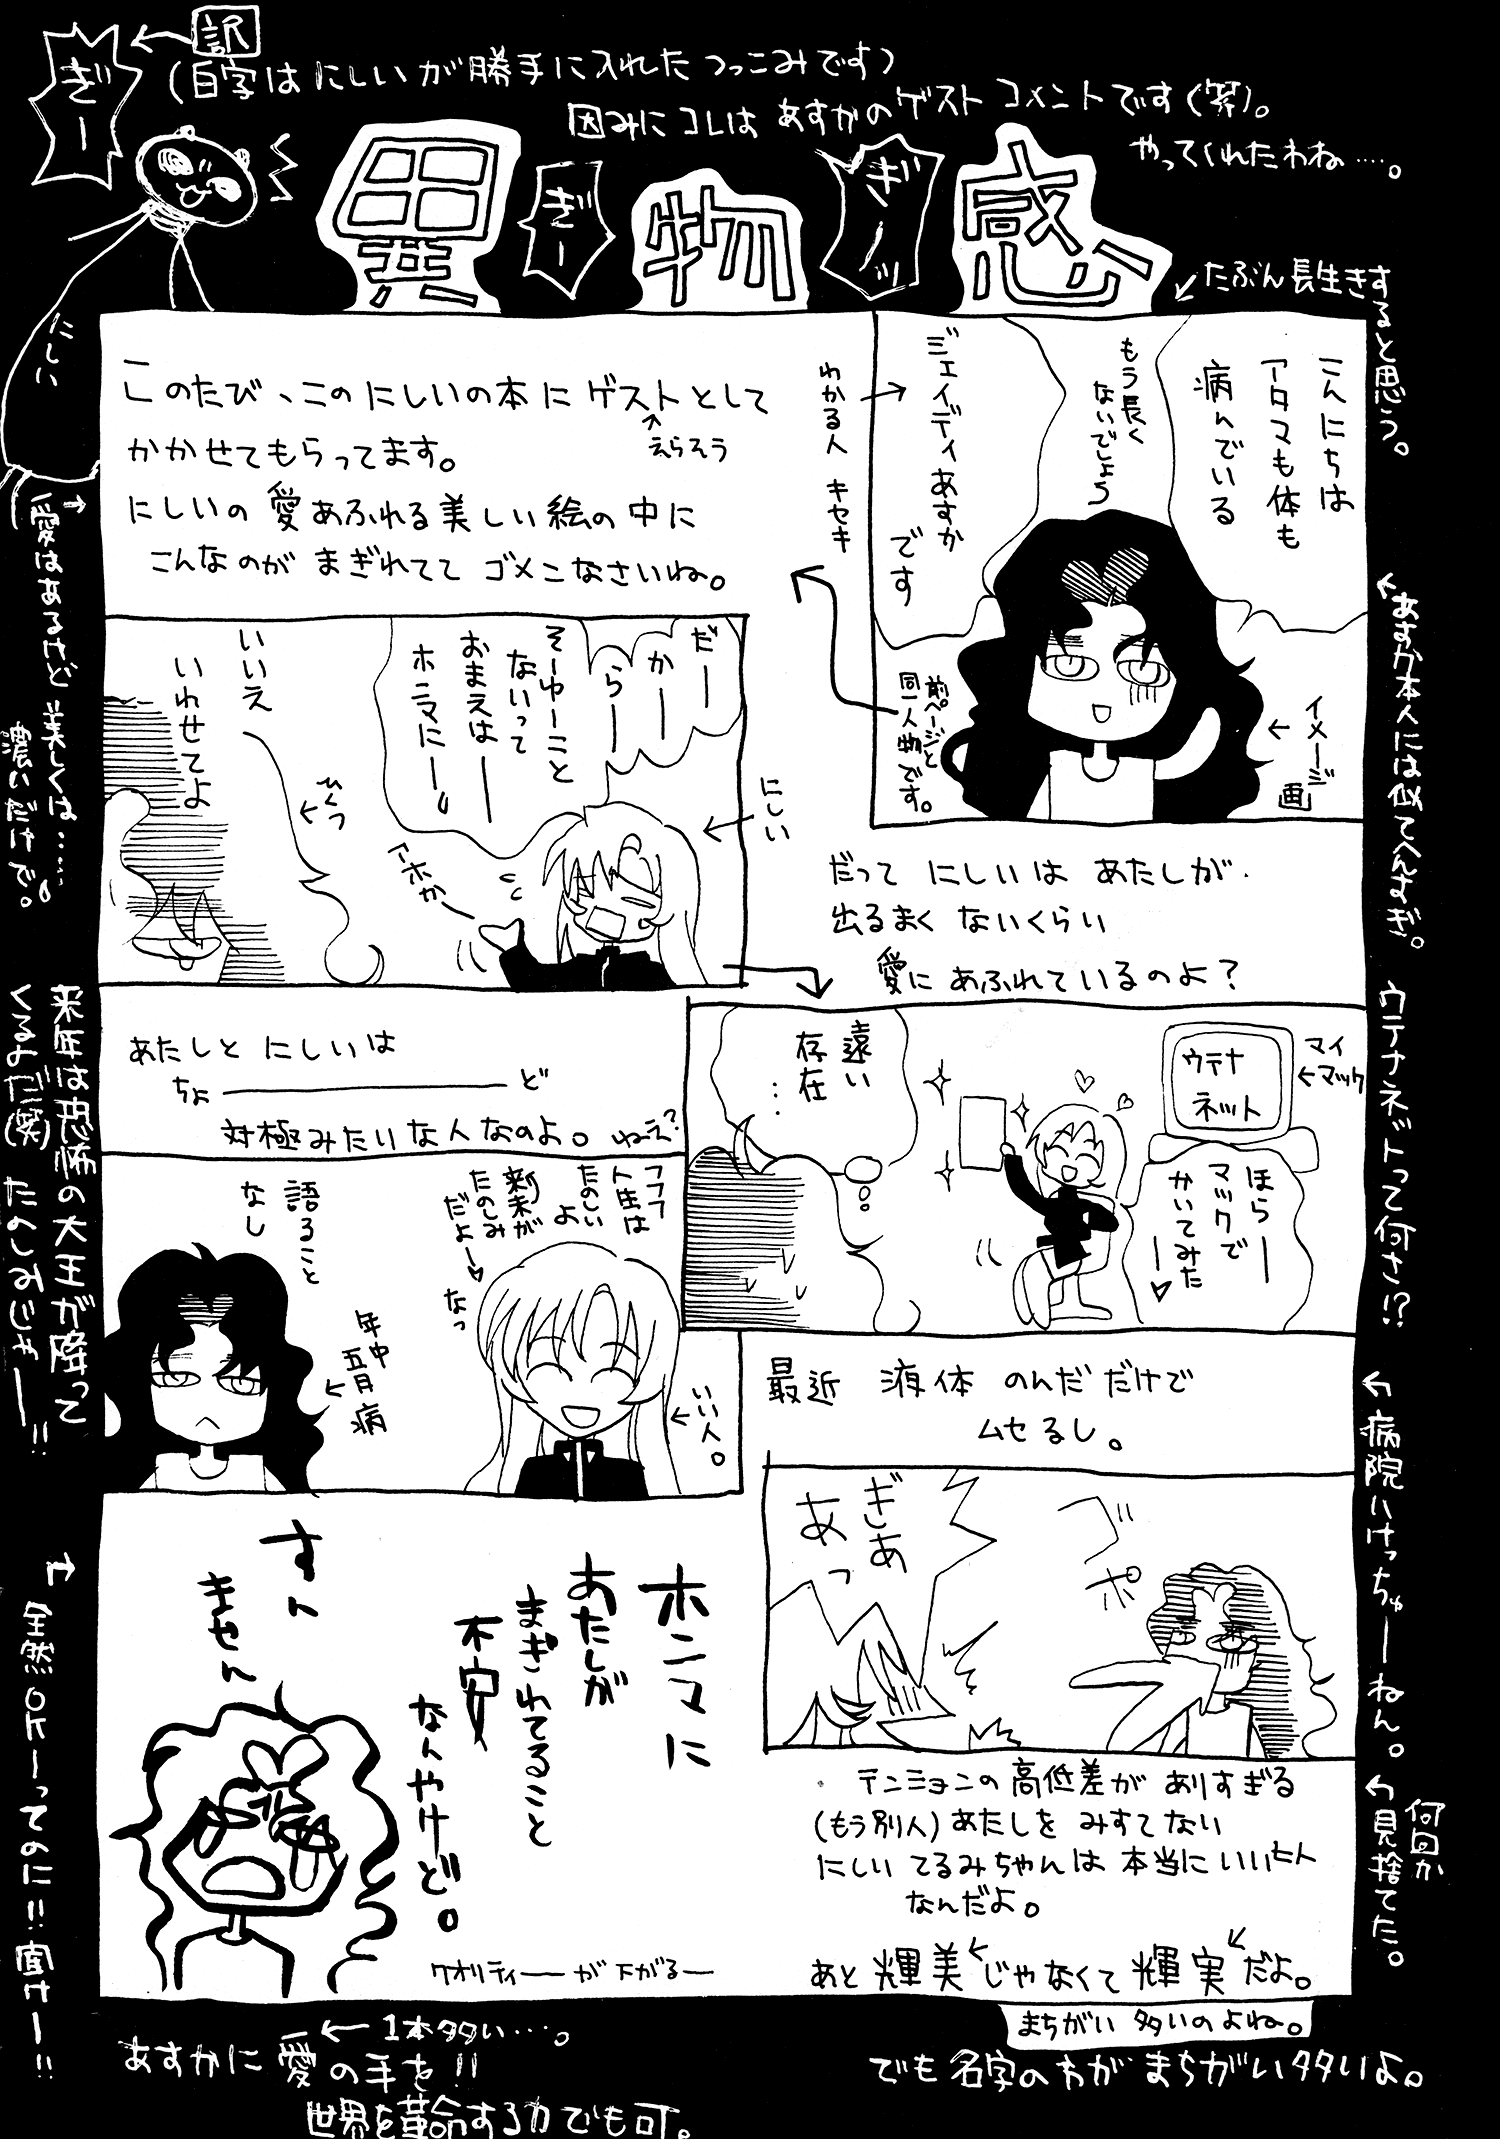 訳
ぎー
(白字は にしいが勝手に入れた つっこみです)
因みに コレは あすかの ゲスト コメントです(笑)。
やってくれたわね……。
異物感
ぎー
ぎーッ
にしい
たぶん長生きすると思う。
こんにちは
アタマも体も
病んでいる
もう長く
ないでしょう
ジェイディあすか
です
わかる人 キセキ
イメージ画
前ページと
同一人物です。
このたび、この にしいの本に ゲストとして
えらそう
かかせてもらってます。
にしいの 愛あふれる美しい絵の中に
こんなのが まぎれてて ゴメンなさいね。
だーかーらー
そーゆーこと
ないって
おまえはーー
ホンマにー
いいえ
いわせてよ
ひくつ
アホかー
にしい
だって にしいは あたしが
出るまく ないくらい
愛に あふれているのよ?
あすか本人には似てへんよぎ。
愛はあるけど美しくは……。
濃いだけで。
マイ
マック
ウテナ
ネット
ほらー
マックで
かいてみた
ー♡
遠い
存在
…
ウテナネットって何さ!?
あたしと にしいは
ちょーーーど
対極みたいな人なのよ。ねえ?
フフフ
人生は
たのしい
よ
新末が
たのしみ
だよー♡
なっ
いい人。
語ること
なし
年中
五月病
来年は恐怖の大王が降って
くるよだ(笑) たのしみじゃーー!!
最近 液体 のんだだけで
ムセるし。
ゴポ
ぎあ
あっ
病院いけっちゅーーねん。
テンションの高低差が ありすぎる
(もう別人)あたしを みすてない
にしい てるみちゃんは 本当に いいヒト
なんだよ。
あと 輝美 じゃなくて 輝実 だよ。
まちがい 多いのよね。
何回か
見捨てた。
ホンマに
あたしが
まぎれてること
不安
なんやけど。
すん
きゃん
クオリティーーが下がるー
全然OKーってのに!!聞けーー!!
1本多い…。
あすかに 愛の手を!!
世界を革命する力でも可。
でも 名字のわがまちがい多いよ。